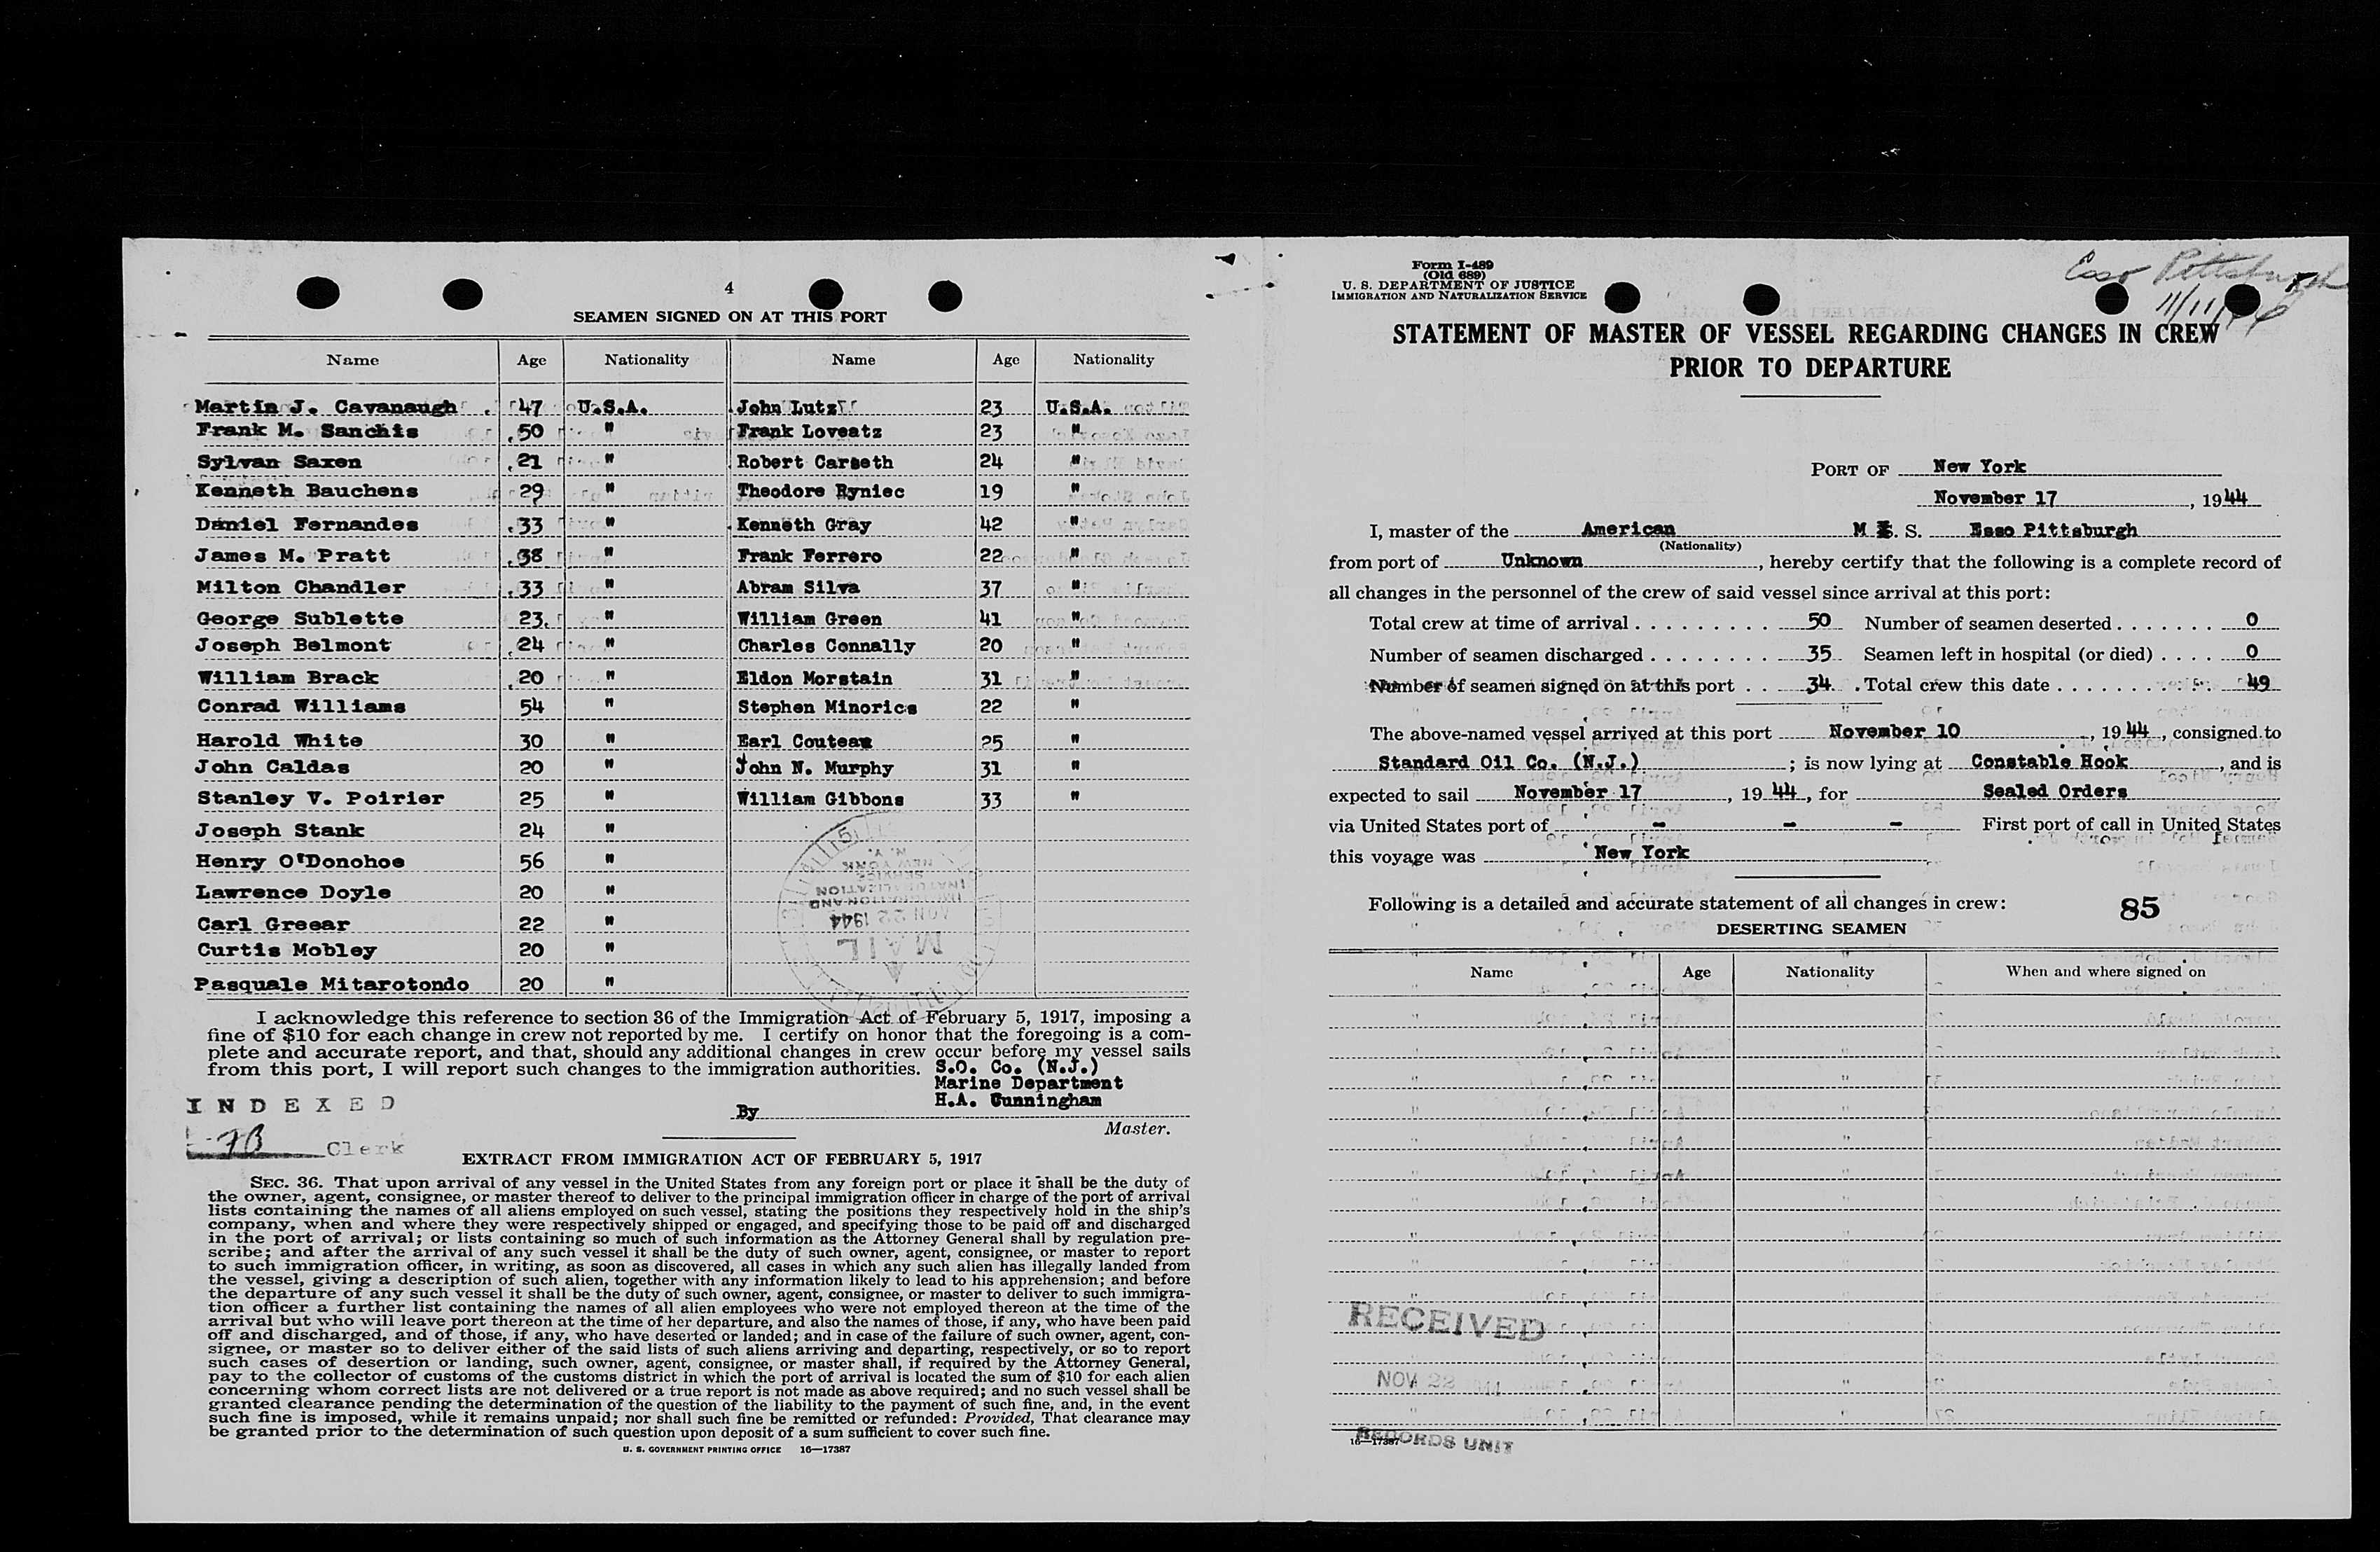 4
SEAMEN SIGNED ON AT THIS PORT
Name Age Nationality Name Age Nationality
Martin J. Cavanaugh 47 U.S.A. John Lutz 23 U.S.A.
Frank M. Sanchis 50 " Frank Loveatz 23 "
Sylvan Saxen 21 " Robert Carseth 24 "
Kenneth Bauchens 29 " Theodore Ryniec 19 "
Daniel Fernandes 33 " Kenneth Gray 42 "
James M. Pratt 38 " Frank Ferrero 22 "
Milton Chandler 33 " Abram Silva 37 "
George Sublette 23 " William Green 41 "
Joseph Belmont 24 " Charles Connally 20 "
William Brack 20 " Eldon Morstain 31 "
Conrad Williams 54 " Stephen Minorics 22 "
Harold White 30 " Earl Couteau 25 "
John Caldas 20 " John N. Murphy 31 "
Stanley V. Poirier 25 " William Gibbons 33 "
Joseph Stank 24 "
Henry O'Donohoe 56 "
Lawrence Doyle 20 "
Carl Greear 22 "
Curtis Mobley 20 "
Pasquale Mitarotondo 20 "
MAIL
NOV 22 1944
IMMIGRATION AND
NATURALIZATION
SERVICE
NEW YORK
N. Y.
I acknowledge this reference to section 36 of the Immigration Act of February 5, 1917, imposing a
fine of $10 for each change in crew not reported by me. I certify on honor that the foregoing is a com-
plete and accurate report, and that, should any additional changes in crew occur before my vessel sails
from this port, I will report such changes to the immigration authorities. S.O. Co. (N.J.)
Marine Department
H.A. Cunningham
By
Master.
INDEXED
Clerk
EXTRACT FROM IMMIGRATION ACT OF FEBRUARY 5, 1917
SEC. 36. That upon arrival of any vessel in the United States from any foreign port or place it shall be the duty of
the owner, agent, consignee, or master thereof to deliver to the principal immigration officer in charge of the port of arrival
lists containing the names of all aliens employed on such vessel, stating the positions they respectively hold in the ship's
company, when and where they were respectively shipped or engaged, and specifying those to be paid off and discharged
in the port of arrival; or lists containing so much of such information as the Attorney General shall by regulation pre-
scribe; and after the arrival of any such vessel it shall be the duty of such owner, agent, consignee, or master to report
to such immigration officer, in writing, as soon as discovered, all cases in which any such alien has illegally landed from
the vessel, giving a description of such alien, together with any information likely to lead to his apprehension; and before
the departure of any such vessel it shall be the duty of such owner, agent, consignee, or master to deliver to such immigra-
tion officer a further list containing the names of all alien employees who were not employed thereon at the time of the
arrival but who will leave port thereon at the time of her departure, and also the names of those, if any, who have been paid
off and discharged, and of those, if any, who have deserted or landed; and in case of the failure of such owner, agent, con-
signee, or master so to deliver either of the said lists of such aliens arriving and departing, respectively, or so to report
such cases of desertion or landing, such owner, agent, consignee, or master shall, if required by the Attorney General,
pay to the collector of customs of the customs district in which the port of arrival is located the sum of $10 for each alien
concerning whom correct lists are not delivered or a true report is not made as above required; and no such vessel shall be
granted clearance pending the determination of the question of the liability to the payment of such fine, and, in the event
such fine is imposed, while it remains unpaid; nor shall such fine be remitted or refunded: Provided, That clearance may
be granted prior to the determination of such question upon deposit of a sum sufficient to cover such fine.
U. S. GOVERNMENT PRINTING OFFICE 16—17387
Form I-489
(Old 689)
U. S. DEPARTMENT OF JUSTICE
IMMIGRATION AND NATURALIZATION SERVICE
Esso Pittsburgh
STATEMENT OF MASTER OF VESSEL REGARDING CHANGES IN CREW
PRIOR TO DEPARTURE
PORT OF New York
November 17, 1944
I, master of the American M S. S. Esso Pittsburgh
(Nationality)
from port of Unknown, hereby certify that the following is a complete record of
all changes in the personnel of the crew of said vessel since arrival at this port:
Total crew at time of arrival . . . . . . . . . 50 Number of seamen deserted . . . . . . . 0
Number of seamen discharged . . . . . . . . 35 Seamen left in hospital (or died) . . . . 0
Number of seamen signed on at this port . . 34 Total crew this date . . . . . . . . . . 49
The above-named vessel arrived at this port November 10, 1944, consigned to
Standard Oil Co. (N.J.); is now lying at Constable Hook, and is
expected to sail November 17, 1944, for Sealed Orders
via United States port of - - - First port of call in United States
this voyage was New York
Following is a detailed and accurate statement of all changes in crew: 85
DESERTING SEAMEN
Name Age Nationality When and where signed on
RECEIVED
NOV 22
16—17387
RECORDS UNIT